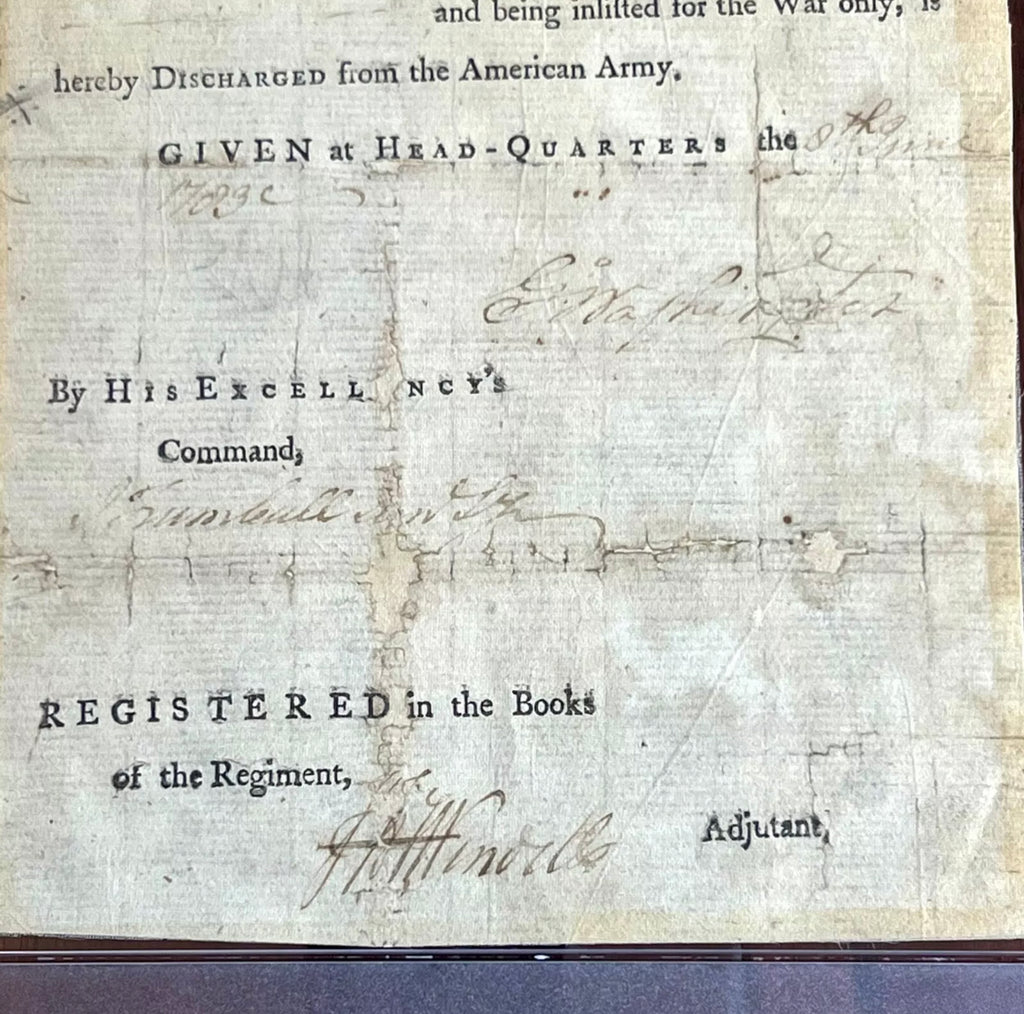 and being inlifted for the War only, is
hereby DISCHARGED from the American Army.
GIVEN at HEAD-QUARTERS the 8th June
1783
G. Washington
By HIS EXCELL NCY'S
Command,
J Trumbull Jun
REGISTERED in the Books
of the Regiment,
Adjutant,